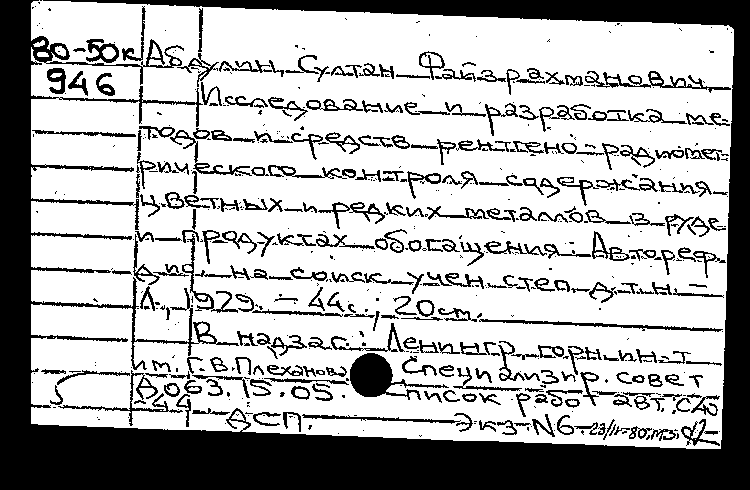 80-50к Абдулин, Султан Файзрахманович.
946 Исследование и разработка ме-
тодов и средств рентгено-радиомет-
рического контроля содержания
цветных и редких металлов в руде
и продуктах обогащения: Автореф.
дис. на соиск. учен. степ. д.т.н. –
Л., 1979. – 44с.; 20см.
В надзаг.: Ленингр. горн. ин-т
им. Г.В.Плеханова Специализир. совет
Д.063.15.05. Список работ авт. с.40
-44
ДСП. Экз. N6.